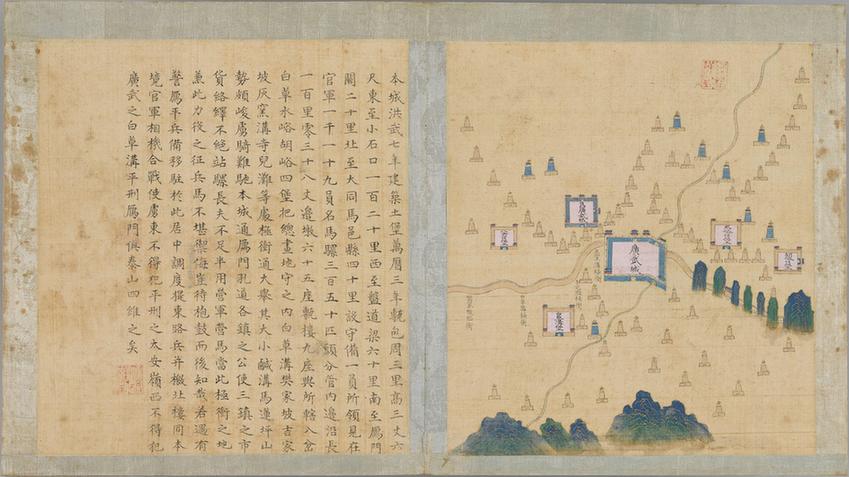 本城洪武七年建築土堡萬曆三年甎包周三里高三丈六
尺東至小石口一百二十里西至盤道梁六十里南至鴈門
關二十里北至大同馬邑縣四十里設守備一員所領見在
官軍一千一十九員名馬騾三百五十匹頭分管內邊沿長
一百里零三十八丈邊墩六十五座甎樓九座與所轄八岔
白草水峪胡峪四堡把總畫地守之內白草溝樊家坡吉家
坡灰窯溝寺兒灘等處極衝通大舉其大小鹹溝馬蓮坪山
勢頗峻虜騎難馳本城通鴈門孔道各鎮之公使三鎮之市
貨絡繹不絕站騾長夫不足半用營軍營馬當此極衝之地
兼此力役之征兵馬不堪禦侮豈待枹鼓而後知哉若遇有
警鴈平兵備移駐於此居中調度從東路兵并檄北樓同本
境官軍相機合戰使虜東不得犯平刑之太安嶺西不得犯
廣武之白草溝平刑鴈門俱泰山四維之矣
廣武城